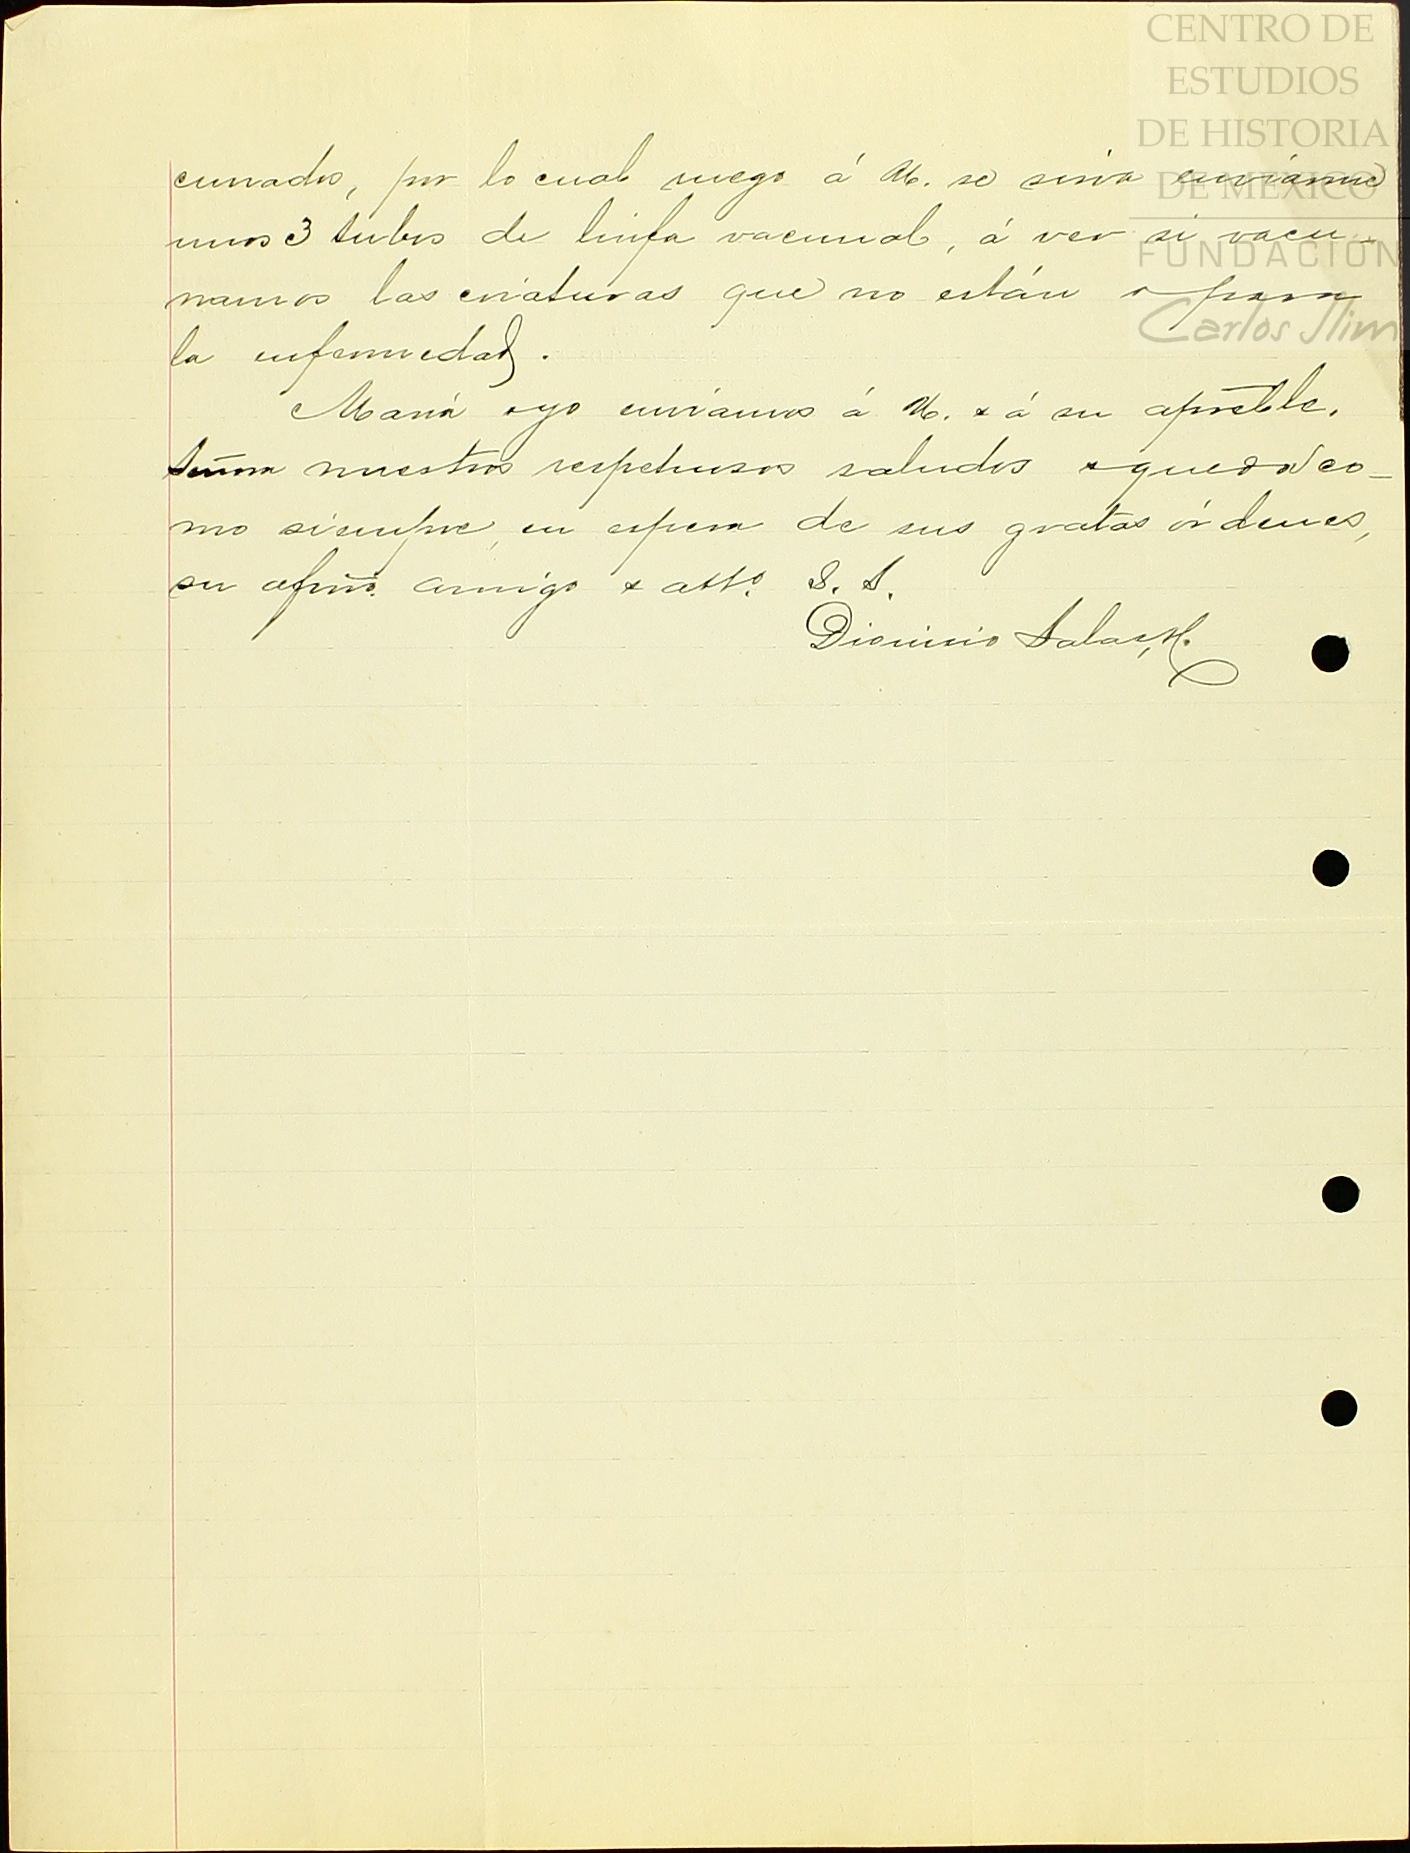 CENTRO DE
ESTUDIOS
DE HISTORIA
DE MÉXICO
FUNDACIÓN
Carlos Slim
cunados, por lo cual ruego á U. se sirva enviárme
unos 3 tubos de linfa vacunal, á ver si vacu-
namos las criaturas que no están
la enfermedad.
María y yo enviamos á U. y á su apreble.
Señora nuestros respetuosos saludos y quedo co-
mo siempre, en espera de sus gratas órdenes,
su afmo. amigo y atto. S. S.
Dionisio Salas, H.